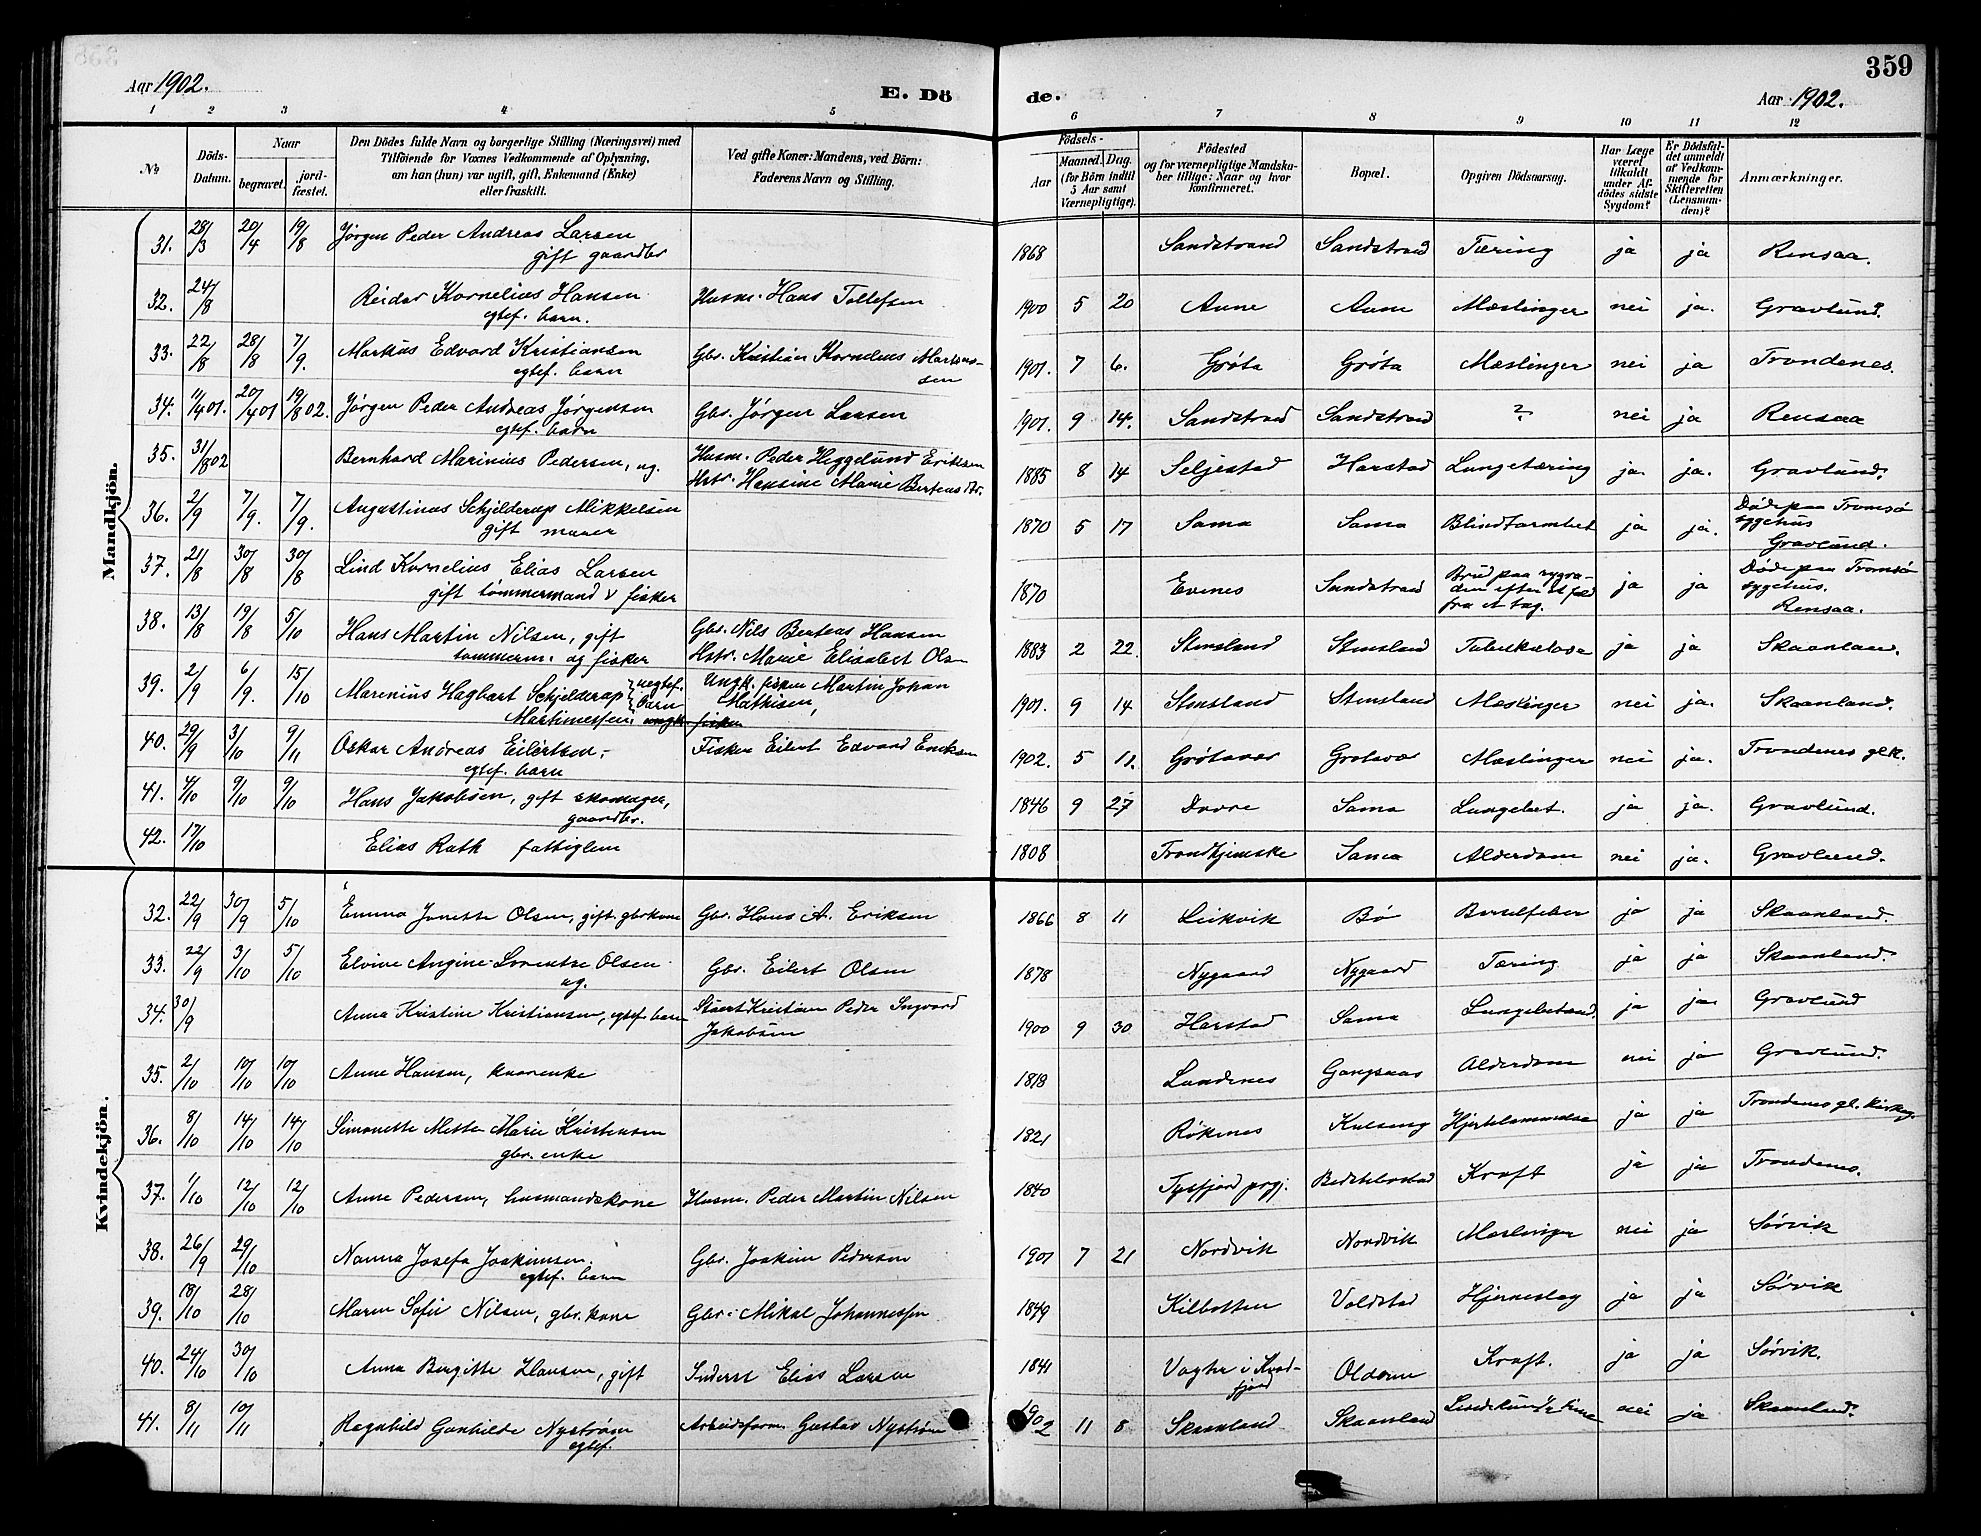 359
Aar 1902.
E. Dö
de.
Aar 1902.
1 2 3 4 5 6 7 8 9 10 11 12
No
Döds-Datum.
Naar
begravet.
jord-fæstet.
Den Dödes fulde Navn og borgerlige Stilling (Næringsvei) med
Tilföiende for Voxnes Vedkommende af Oplysning,
om han (hun) var ugift, gift, Enkemand (Enke)
eller fraskilt.
Ved gifte Koner: Mandens, ved Börn:
Faderens Navn og Stilling.
Födsels-
Aar
Maaned. Dag.
(for Börn indtil
5 Aar samt
Værnepligtige).
Födested
og for værnepligtige Mandska-
ber tillige: Naar og hvor
konfirmeret.
Bopæl.
Opgiven Dödsaarsag.
Har Læge
været
tilkaldt
under Af-
dödes sidste
Sygdom?
Er Dödsfal-
det anmeldt
af Vedkom-
mende for
Skifteretten
(Lensman-
den)?
Anmærkninger.
Mandkjön.
31. 28/3 20/4 19/8 Jørgen Peder Andreas Larsen 1868 Sandstrand Sandstrand Tæring ja ja Rensaa.
gift gaardbr
32. 24/8 Reidar Kornelius Hansen Husm. Hans Tollefsen 1900 5 20 Aune Aune Mæslinger nei ja. Gravlund.
egtef. barn.
33. 22/8 28/8 7/9. Markus Edvard Kristiansen Gbr. Kristian Kornelius Martens- 1901. 7 6. Grøta Grøta Mæslinger nei ja Trondenes.
egtef. barn sen
34. 11/4 01. 20/4 01 19/8 02. Jørgen Peder Andreas Jørgensen Gbr. Jørgen Larsen 1901. 9 14. Sandstrad Sandstrand ? nei ja Rensaa
egtef. barn
35. 31/8 02 Bernhard Marinius Pedersen, ug. Husm. Peder Heggelund Eriksen 1885 8 14 Seljestad Harstad Lungetæring ja ja. Gravlund.
Hstr. Hansine Marie Berteusdtr.
36. 2/9 7/9. 7/9. Augustinus Schjelderup Mikkelsen 1870 5 17 Sama Sama Blindtarmbet ja ja. Døde paa Tromsø
gift murer sygehus
Gravlund.
37. 21/8 30/8 30/8 Lind Kornelius Elias Larsen 1870 Evenes Sandstrand Brud paa rygra- ja ja Døde paa Tromsø
gift tømmermand & fisker den efter et fald sygehus.
fra et tag. Rensaa.
38. 13/8 19/8 5/10 Hans Martin Nilsen, gift Gbr. Nils Berteus Hansen 1883 2 22. Stensland Stensland Tuberkulose ja ja Skaanland.
tømmerm. og fisker Hstr. Marie Elisabet Olsn
39. 2/9 6/9. 15/10 Marenius Hagbart Schjelderup uegtef. Ungk. fisker Martin Johan 1901. 9 14 Stensland Stensland Mæslinger nei ja. Skaanland.
barn Mathisen,
Martinussen ungk. fisker
40. 29/9 3/10 9/11 Oskar Andreas Eilertsen, Fisker Eilert Edvard Eriksen 1902. 5 11. Grøtavær Grøtavær Mæslinger nei ja. Trondenes gl. k.
egtef. barn
41. 4/10 9/10 9/10 Hans Jakobsen, gift skomager, 1846 9 27 Dovre Sama Lungebet. ja ja. Gravlund.
gaardbr.
42. 17/10 Elias Rath fattiglem 1808 Trondhjemske Sama Alderdom nei ja. Gravlund.
Kvindekjön.
32. 22/9 30/9 5/10 Emma Jonette Olsen, gift gbrkone Gbr. Hans A. Eriksen 1866 8 11 Leikvik Bø Barselfeber ja ja Skaanland.
33. 22/9 3/10 5/10 Elvine Angine Lorentze Olsen Gbr. Eilert Olsen 1878 Nygaard Nygaard Tæring ja ja Skaanland.
ug.
34. 30/9 Anna Kristine Kristiansen, egtef. barn Stuert Kristian Peder Ingvard 1900 9 30 Harstad Sama Lungebetænd. ja ja. Gravlund
Jakobsen
35. 2/10 10/10 10/10 Anne Hansen, kaarenke 1818 Sandenes Gangsaas Alderdom nei ja Gravlund.
36. 8/10 14/10 14/10 Simonette Mette Marie Kristensen 1821 Røkenes Kulseng Hjertelammelse ja ja Trondenes gl. kirkeg.
gbr. enke
37. 1/10 12/10 12/10 Anne Pedersen, husmandskone Husm. Peder Martin Nilsen 1840 Tysfjord prgj. Kraft ja ja Trondenes.
38. 26/9 29/10 Nanna Josefa Joakimsen, Gbr. Joakim Pedersen 1901 7 21 Nordvik Nordvik Mæslinger nei ja Sørvik
egtef. barn
39. 18/10 28/10 Maren Sofie Nilsen, gbr. kone Gbr. Mikal Johannessen 1849 Kilbotten Voldstad Hjerneslag ja ja Sørvik
40. 24/10 30/10 Anna Bergitte Hansen, gift Inderst Elias Larsen 1841 Vagter i Kvæd- Kraft. ja ja Sørvik.
fjord
41. 8/11 10/11 Ragnhild Gunhilde Nystrøm Arbeidsform. Gustav Nystrøm 1902 11 8 Skaanland Skaanland nei ja Skaanland.
egtef.